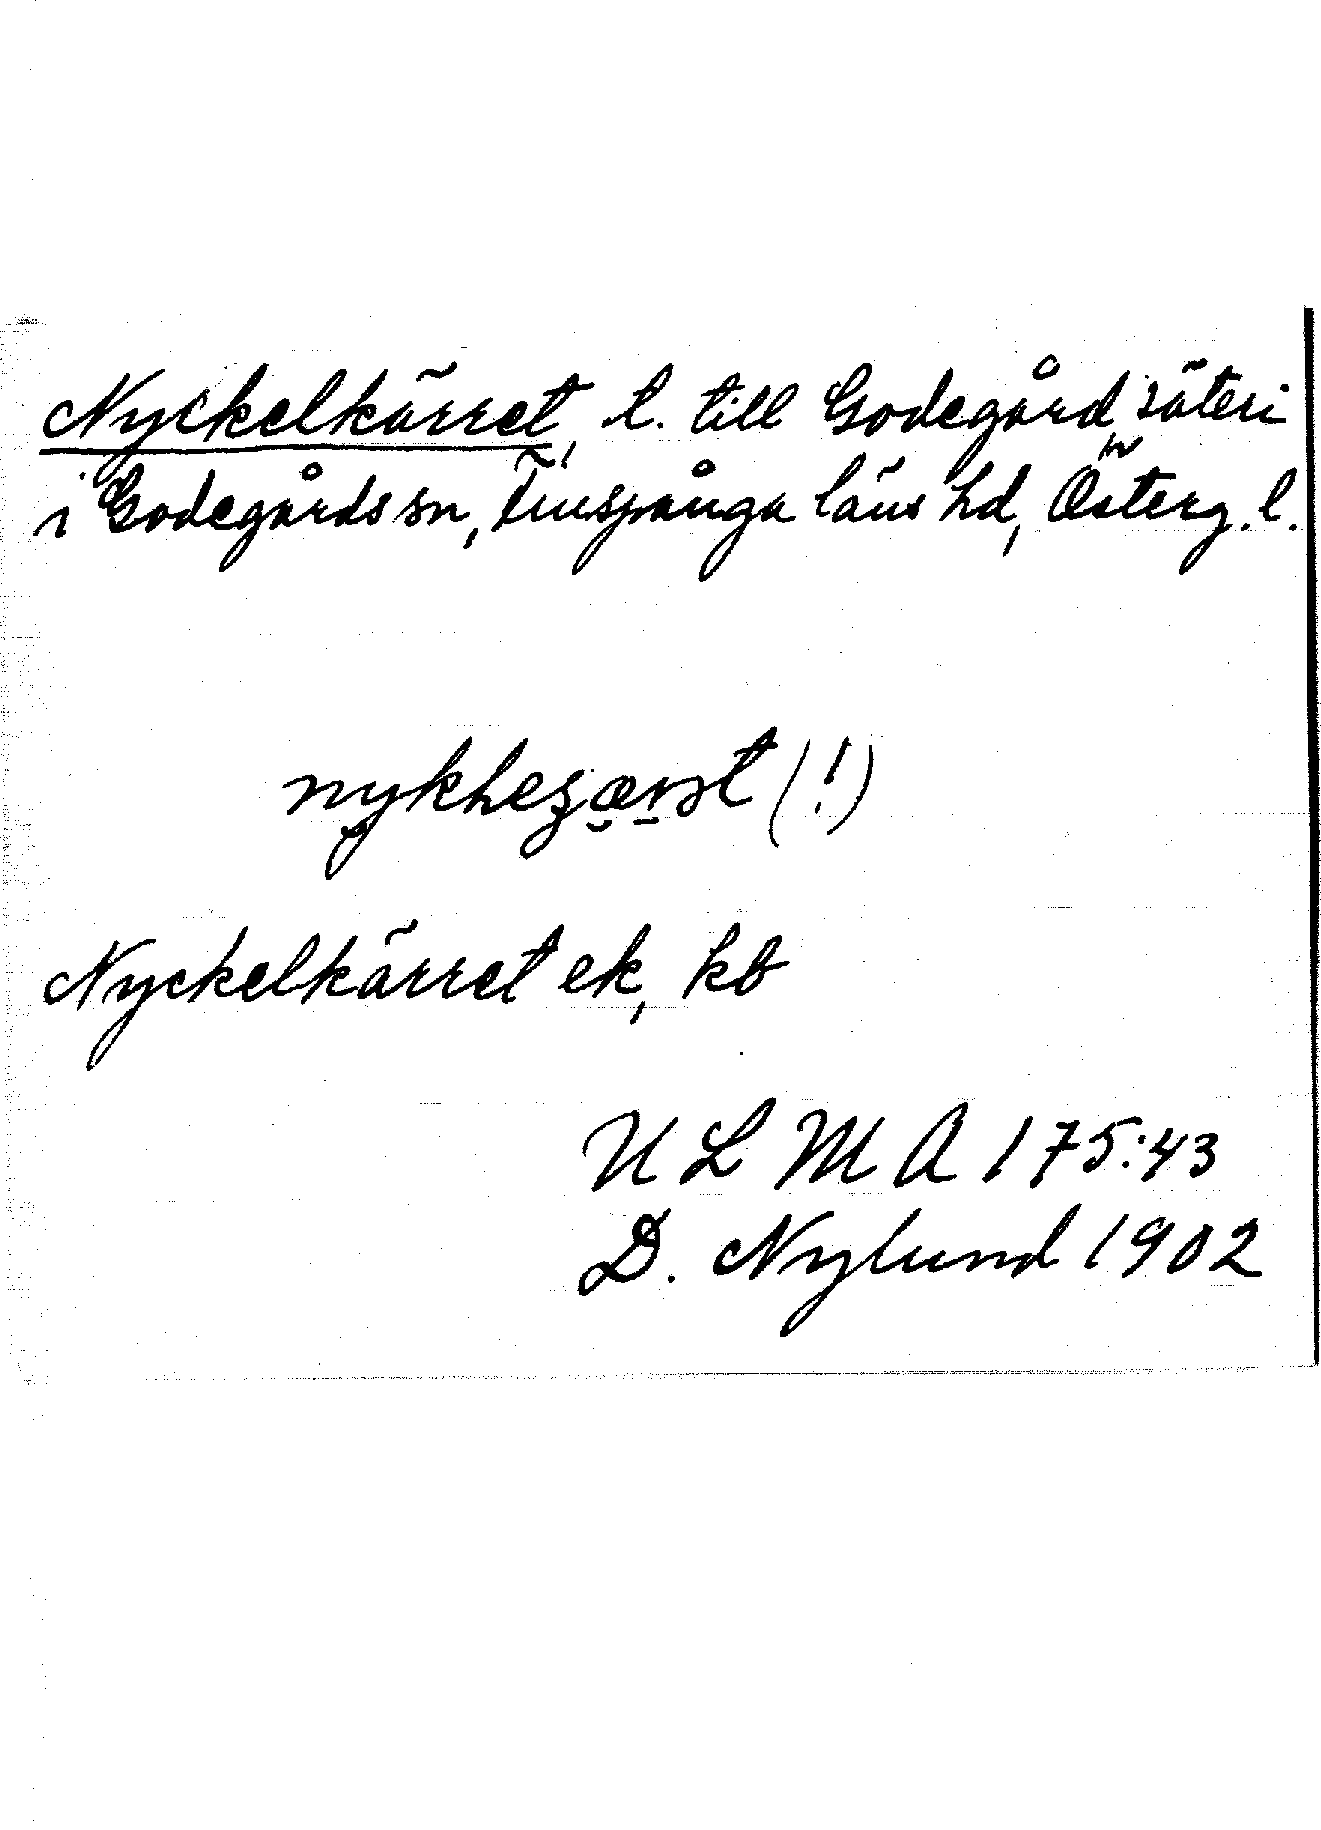 Nyckelkärret, t. till Godegård säteri
i Godegårds sn, Finspånga läns hd, Österg. l.
(!)
Nyckelkärret ek, kb
ULMA 175:43
D. Nylund 1902